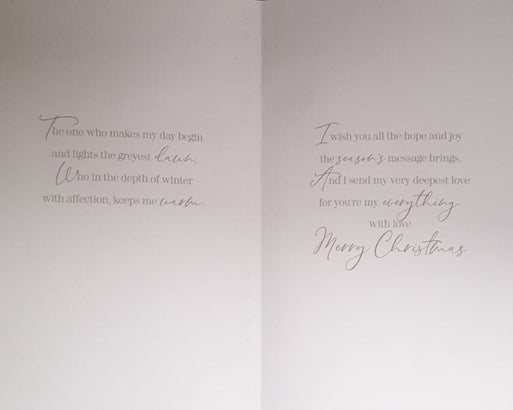 The one who makes my day begin
and lights the greyest dawn,
Who in the depth of winter
with affection, keeps me warm.
I wish you all the hope and joy
the season's message brings,
And I send my very deepest love
for you're my everything.
with love
Merry Christmas